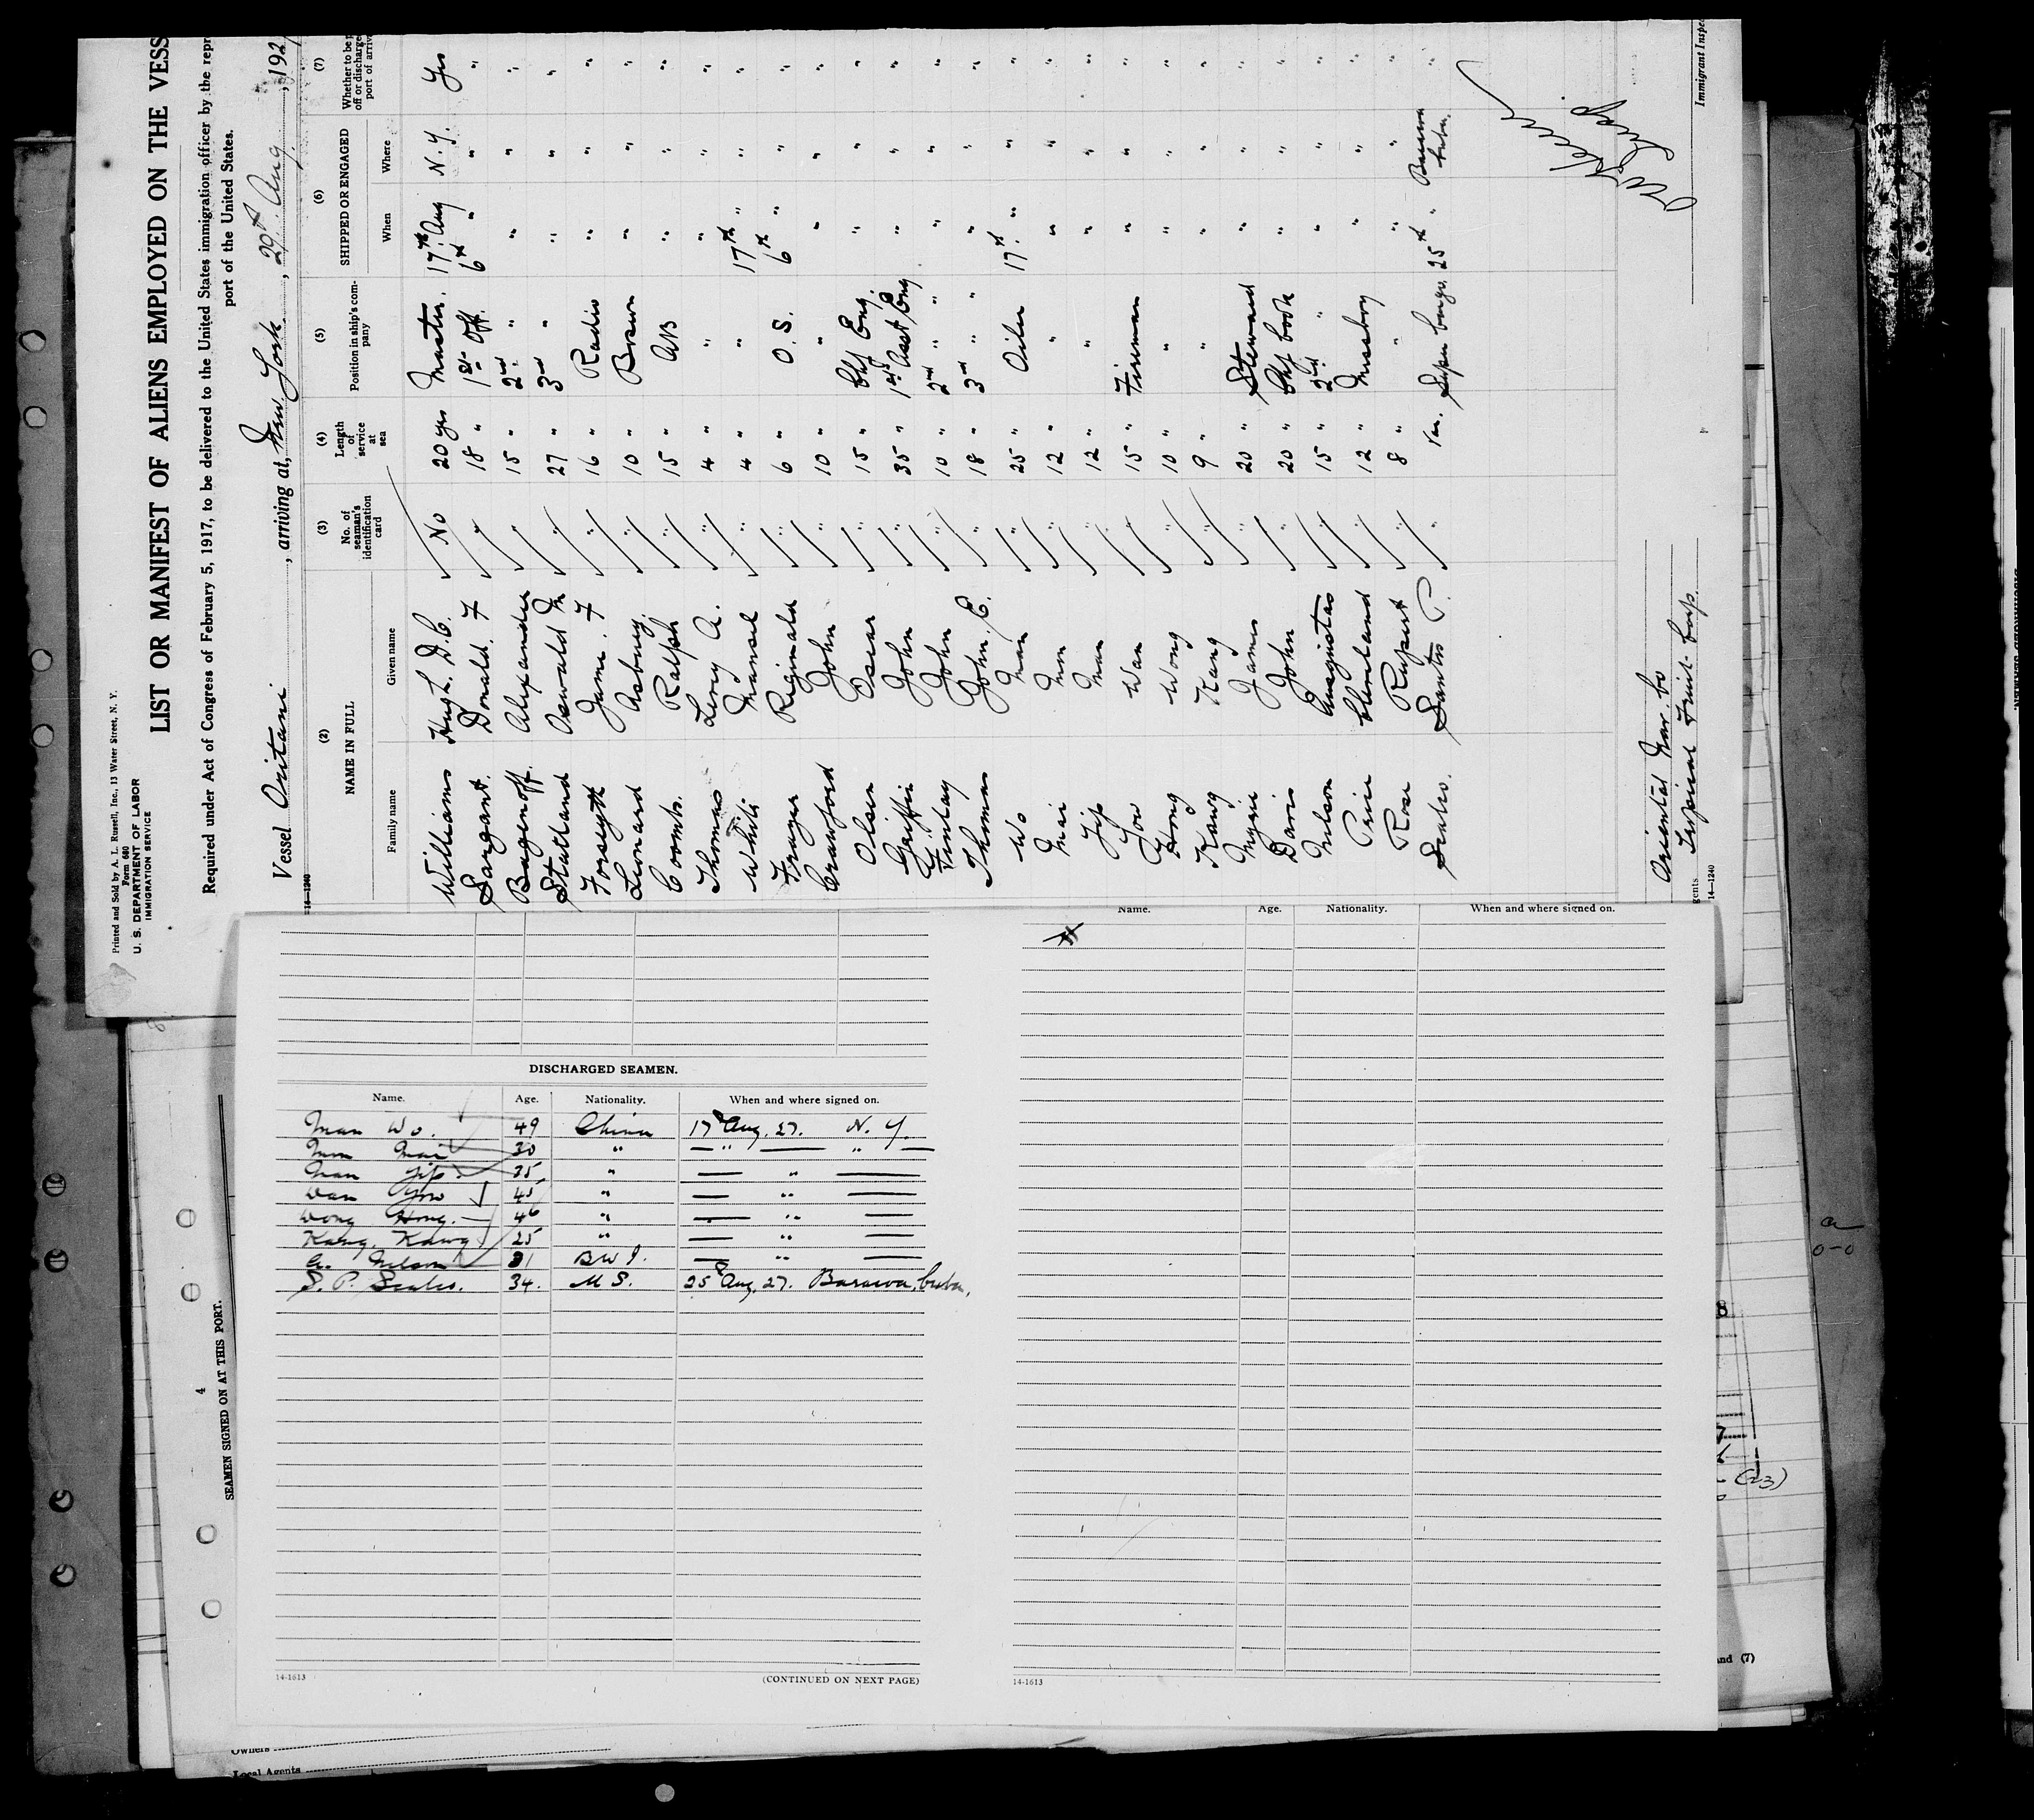 Printed and Sold by A. L. Russell, Inc., 13 Water Street, N. Y.
Form 680
U. S. DEPARTMENT OF LABOR
IMMIGRATION SERVICE
LIST OR MANIFEST OF ALIENS EMPLOYED ON THE VESS
Required under Act of Congress of February 5, 1917, to be delivered to the United States immigration officer by the repr
port of the United States.
Vessel Oritani , arriving at, New York , 29th Aug , 192
14—1240
(2) (3) (4) (5) (6) (7)
NAME IN FULL No. of seaman's identification card Length of service at sea Position in ship's company SHIPPED OR ENGAGED Whether to be off or discharge port of arriv
Family name Given name When Where
Williams Hugh D.C. No 20 yrs Master. 17th Aug N.Y. Yes
Sargant. Donald. F " 18 " 1st Off. 6th " " "
Bagenoff. Alexander " 15 " 2nd " " " "
Statland Oswald M " 27 " 3rd " " " "
Forsyth James. F " 16 " Radio " " "
Leonard Asbury " 10 " Bosun " " "
Coombs. Ralph " 15 " AB " " "
Thomas Leroy A. " 4 " " " " "
White Mansel " 4 " " 17th " " "
Frazer Reginald " 6 " O.S. 6th " " "
Crawford John " 10 " " " " "
Olsen Oscar " 15 " Chf Eng. " " "
Griffin John " 35 " 1st Asst Eng " " "
Finlay John " 10 " 2nd " " " " "
Thomas John. E. " 18 " 3rd " " " " "
Wo Man " 25 " Oiler 17th " " "
Mai Mon " 12 " " " " "
Jip Man " 12 " " " " "
You Wan " 15 " Fireman " " "
Hong Wong " 10 " " " " "
Kawg Kang " 9 " " " " "
Myrie James " 20 " Steward " " "
Davis John " 20 " Chf Cook " " "
Nelson Augustas " 15 " 2nd " " " "
Price Cleveland " 12 " Messboy " " "
Rose Rupert " 8 " " " " "
Scales. Santos P. " Super Cargo 25th " Baracoa Cuba. "
Oriental Nav. Co
Tropical Fruit Corp.
gents
14—1240
Immigrant Inspec
DISCHARGED SEAMEN.
Name. Age. Nationality. When and where signed on.
Man Wo. 49 China 17th Aug. 27. N. Y.
Mon Mai 30 " — " — " —
Man Jip 35 " — " —
Wan You 45 " — " —
Wong Hong. 46 " — " —
Kang. Kawg 25 " — " —
A. Nelson 31 B W I. — " —
S. P. Scales. 34. U S. 25th Aug. 27. Baracoa, Cuba.
14-1613 (CONTINUED ON NEXT PAGE)
Name. Age. Nationality. When and where signed on.
14-1613
4
SEAMEN SIGNED ON AT THIS PORT.
Owners
Local Agents
8
7
(23)
and (7)